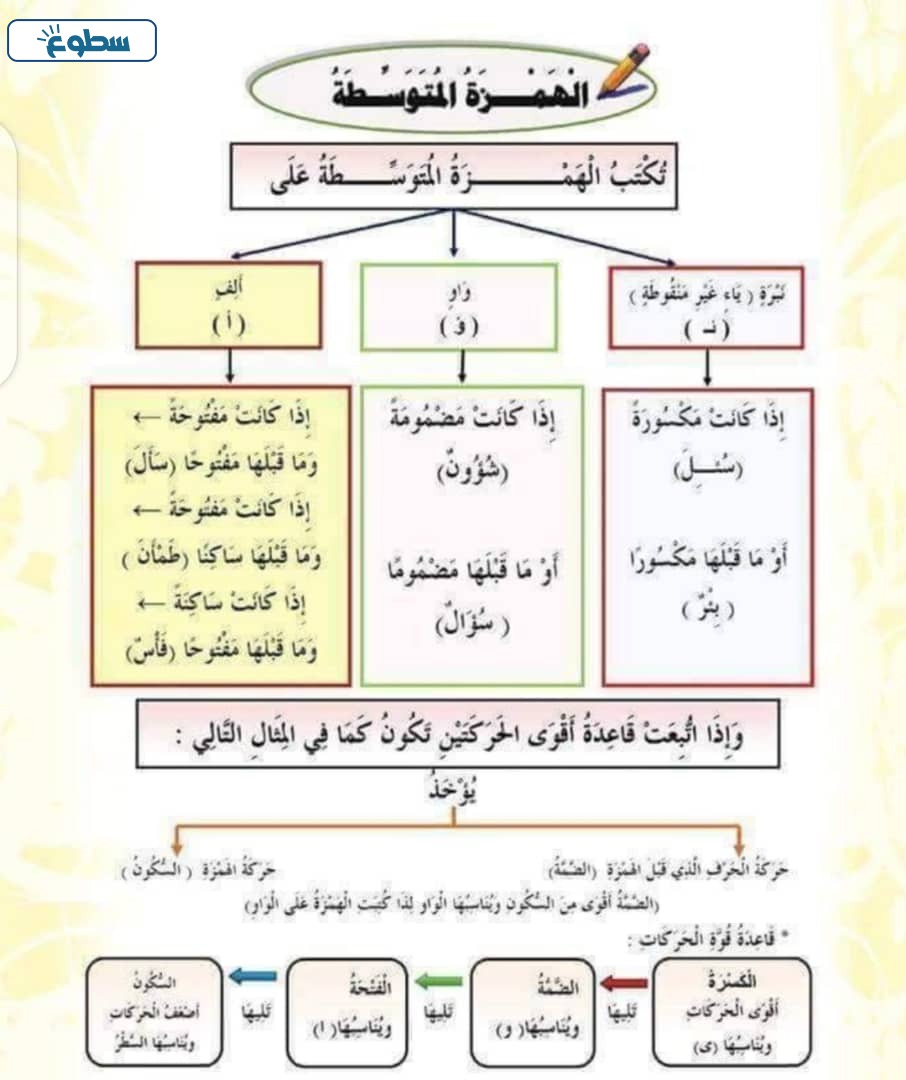 سطوع
الْهَمْـــزَةُ الْمُتَوَسِّـطَةُ
تُكْتَبُ الْهَمْـــــزَةُ الْمُتَوَسِّــــطَةُ عَلَى
نَبْرَةٍ ( يَاءٍ غَيْرِ مَنْقُوطَةٍ )
( ئـ )
وَاوٍ
( ؤ )
أَلِفٍ
( أ )
إِذَا كَانَتْ مَكْسُورَةً
(سُئِـلَ)
أَوْ مَا قَبْلَهَا مَكْسُورًا
( بِئْرٌ )
إِذَا كَانَتْ مَضْمُومَةً
(شُؤُونٌ)
أَوْ مَا قَبْلَهَا مَضْمُومًا
( سُؤَالٌ)
إِذَا كَانَتْ مَفْتُوحَةً ←
وَمَا قَبْلَهَا مَفْتُوحًا (سَأَلَ)
إِذَا كَانَتْ مَفْتُوحَةً ←
وَمَا قَبْلَهَا سَاكِنًا (طَمْأَنَ )
إِذَا كَانَتْ سَاكِنَةً ←
وَمَا قَبْلَهَا مَفْتُوحًا (فَأْسٌ)
وَإِذَا اتُّبِعَتْ قَاعِدَةُ أَقْوَى الْحَرَكَتَيْنِ تَكُونُ كَمَا فِي الْمِثَالِ التَّالِي :
يُؤْخَذُ
حَرَكَةُ الْحَرْفِ الَّذِي قَبْلَ الْهَمْزَةِ (الضَّمَّةُ)
حَرَكَةُ الْهَمْزَةِ ( السُّكُونُ )
(الضَّمَّةُ أَقْوَى مِنَ السُّكُونِ وَيُنَاسِبُهَا الْوَاوُ لِذَا كُتِبَتِ الْهَمْزَةُ عَلَى الْوَاوِ)
* قَاعِدَةُ قُوَّةِ الْحَرَكَاتِ :
الْكَسْرَةُ
أَقْوَى الْحَرَكَاتِ
وَيُنَاسِبُهَا (ى)
تَلِيهَا
الضَّمَّةُ
وَيُنَاسِبُهَا (و)
تَلِيهَا
الْفَتْحَةُ
وَيُنَاسِبُهَا ( ا )
تَلِيهَا
السُّكُونُ
أَضْعَفُ الْحَرَكَاتِ
وَيُنَاسِبُهَا السَّطْرُ